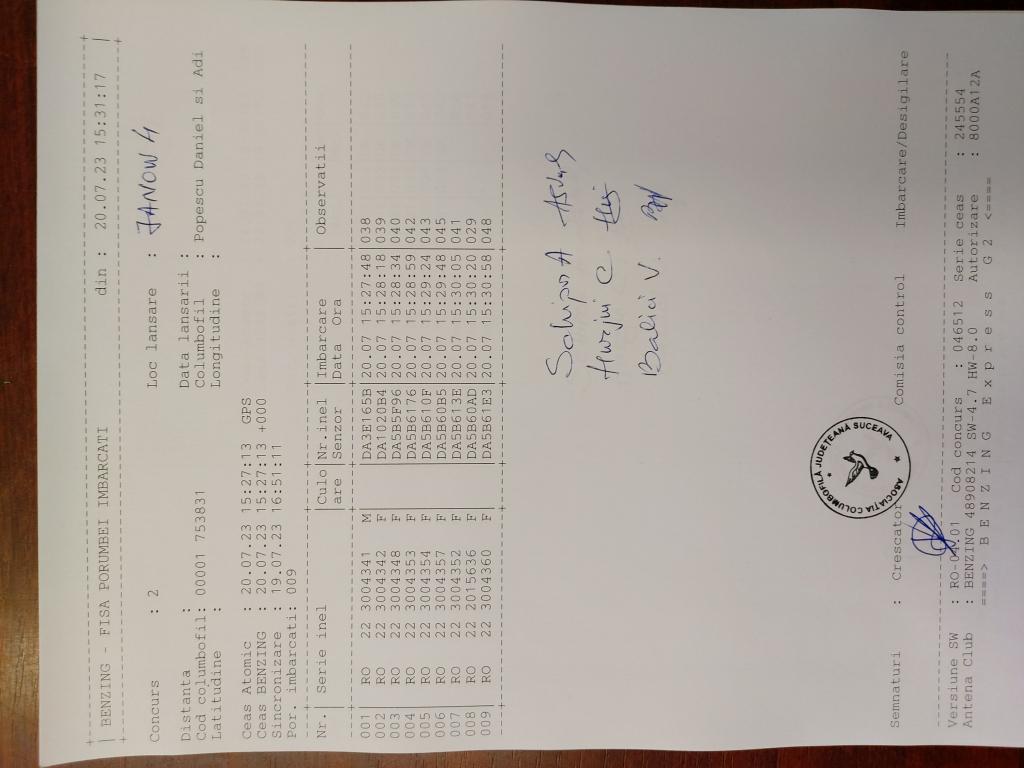 BENZING - FISA PORUMBEI IMBARCATI din : 20.07.23 15:31:17
Concurs : 2 Loc lansare : JANOW 4
Distanta : Data lansarii :
Cod columbofil: 00001 753831 Columbofil : Popescu Daniel si Adi
Latitudine : Longitudine :
Ceas Atomic : 20.07.23 15:27:13 GPS
Ceas BENZING : 20.07.23 15:27:13 +000
Sincronizare : 19.07.23 16:51:11
Por. imbarcati: 009
Nr.| Serie inel |Culo|Nr.inel |Imbarcare | Observatii
|are |Senzor |Data Ora |
001 RO 22 3004341 M DA3E165B 20.07 15:27:48 038
002 RO 22 3004342 F DA1020B4 20.07 15:28:18 039
003 RO 22 3004348 F DA5B5F96 20.07 15:28:34 040
004 RO 22 3004353 F DA5B6176 20.07 15:28:59 042
005 RO 22 3004354 F DA5B610F 20.07 15:29:24 043
006 RO 22 3004357 F DA5B60B5 20.07 15:29:48 045
007 RO 22 3004352 F DA5B613E 20.07 15:30:05 041
008 RO 22 2015636 F DA5B60AD 20.07 15:30:20 029
009 RO 22 3004360 F DA5B61E3 20.07 15:30:58 048
A
C
Balici V.
ASOCIATIA COLUMBOFILĂ JUDEȚEANĂ SUCEAVA
Semnaturi : Crescator Comisia control Imbarcare/Desigilare
Versiune SW : RO-04.01 Cod concurs : 046512 Serie ceas : 245554
Antena Club : BENZING 48908214 SW-4.7 HW-8.0 Autorizare : 8000A12A
====> B E N Z I N G E x p r e s s G 2 <====